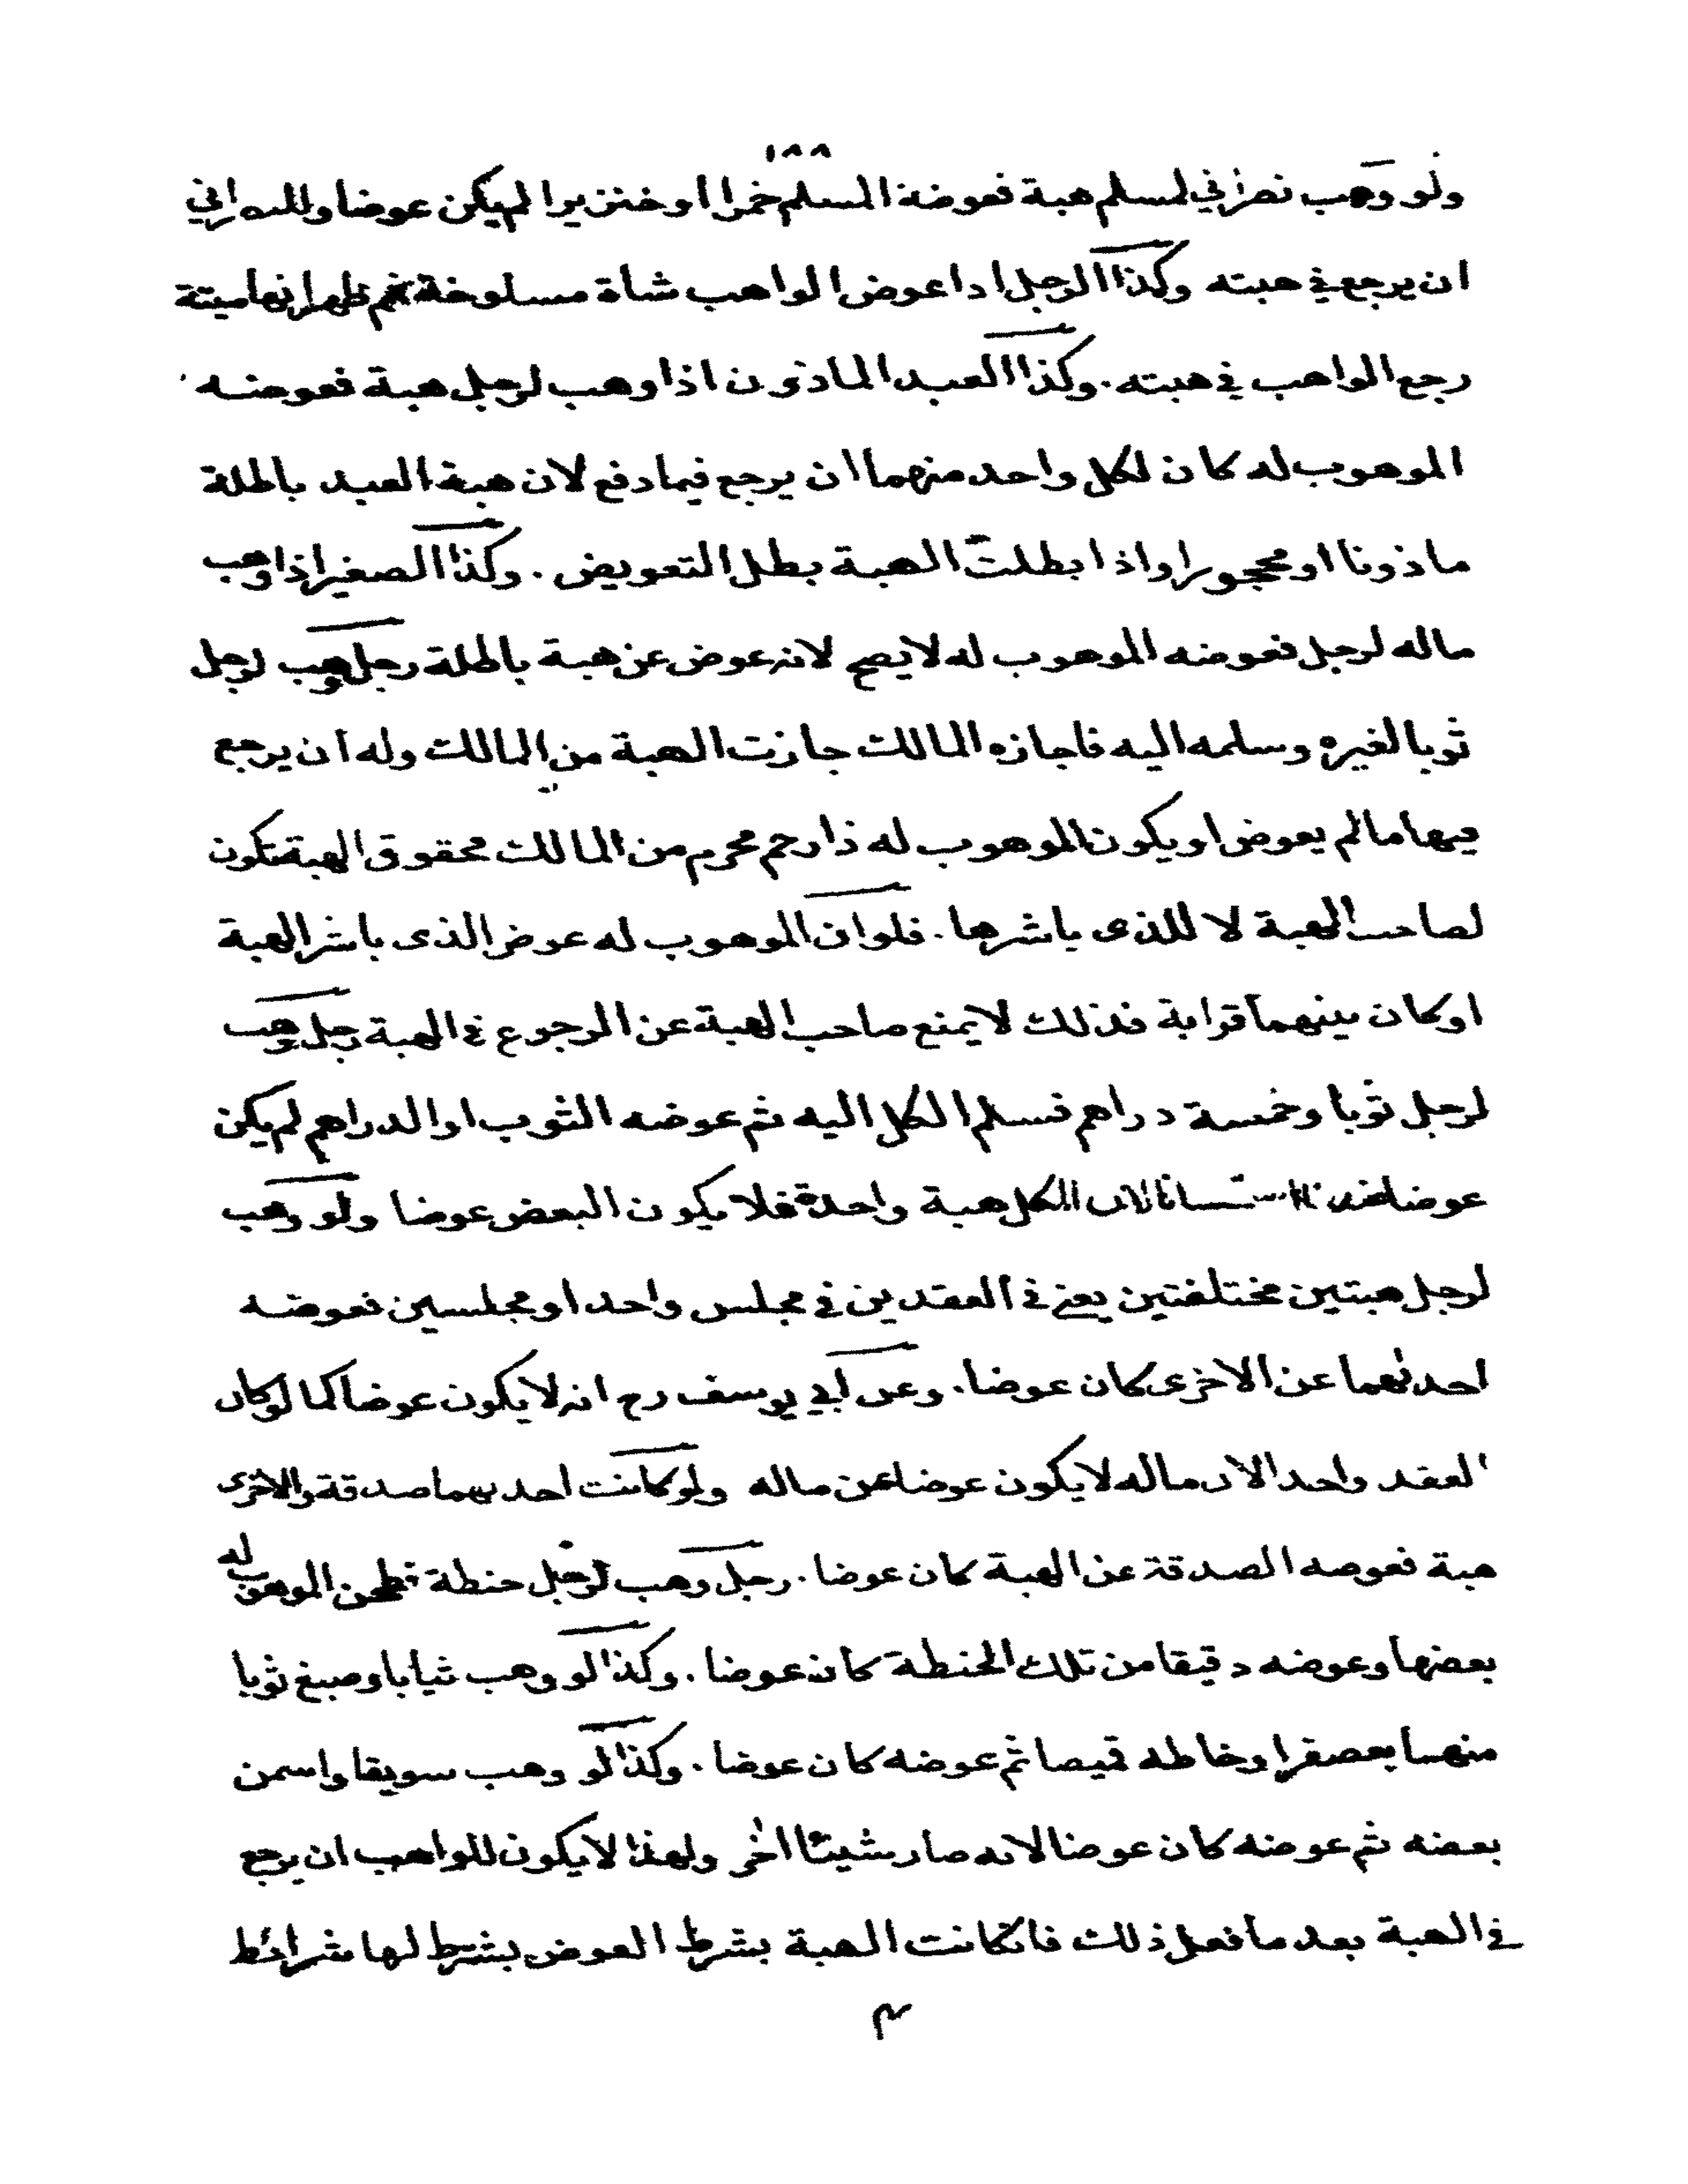 ١٨٨
ولو وهب نصراني لمسلم هبة فعوضه المسلم خمرا او خنزيرا لم يكن عوضا وللنصراني
ان يرجع في هبته وكذا الرجل اذا عوض الواهب شاة مسلوخة ثم ظهر انها ميتة
رجع الواهب في هبته . وكذا العبد الماذون اذا وهب لرجل هبة فعوضه
الموهوب له كان لكل واحد منهما ان يرجع فيما دفع لان هبة العبد باطلة
ماذونا او محجورا واذا بطلت الهبة بطل التعويض . وكذا الصغير اذا وهب
ماله لرجل فعوضه الموهوب له لا يصح لانه عوض عن هبة باطلة رجل وهب لرجل
ثوبا لغيره وسلمه اليه فاجازه المالك جازت الهبة من المالك وله ان يرجع
فيها ما لم يعوض او يكون الموهوب له ذا رحم محرم من المالك فحقوق الهبة تكون
لصاحب الهبة لا للذى باشرها . فلو ان الموهوب له عوض الذى باشر الهبة
او كان بينهما قرابة فذلك لا يمنع صاحب الهبة عن الرجوع في الهبة رجل وهب
لرجل ثوبا وخمسة دراهم فسلم الكل اليه ثم عوضه الثوب او الدراهم لم يكن
عوضا لان الكل هبة واحدة فلا يكون البعض عوضا ولو وهب
لرجل هبتين مختلفتين يعني في العقدين في مجلس واحد او مجلسين فعوضه
احدٰهما عن الاخرى كان عوضا . وعن ابي يوسف رح انه لا يكون عوضا كما لو كان
العقد واحدا لان ماله لا يكون عوضا عن ماله ولو كانت احديهما صدقة والاخرى
هبة فعوضه الصدقة عن الهبة كان عوضا . رجل وهب لرجل حنطة فطحن الموهوب له
بعضها وعوضه دقيقا من تلك الحنطة كان عوضا . وكذا لو وهب ثيابا وصبغ ثوبا
منها بعصفر او خاطه قميصا ثم عوضه كان عوضا . وكذا لو وهب سويقا واسمن
بعضه ثم عوضه كان عوضا لانه صار شيئا اخر ولهذا لا يكون للواهب ان يرجع
في الهبة بعد ما فعل ذلك فان كانت الهبة بشرط العوض يشترط لها شرائط